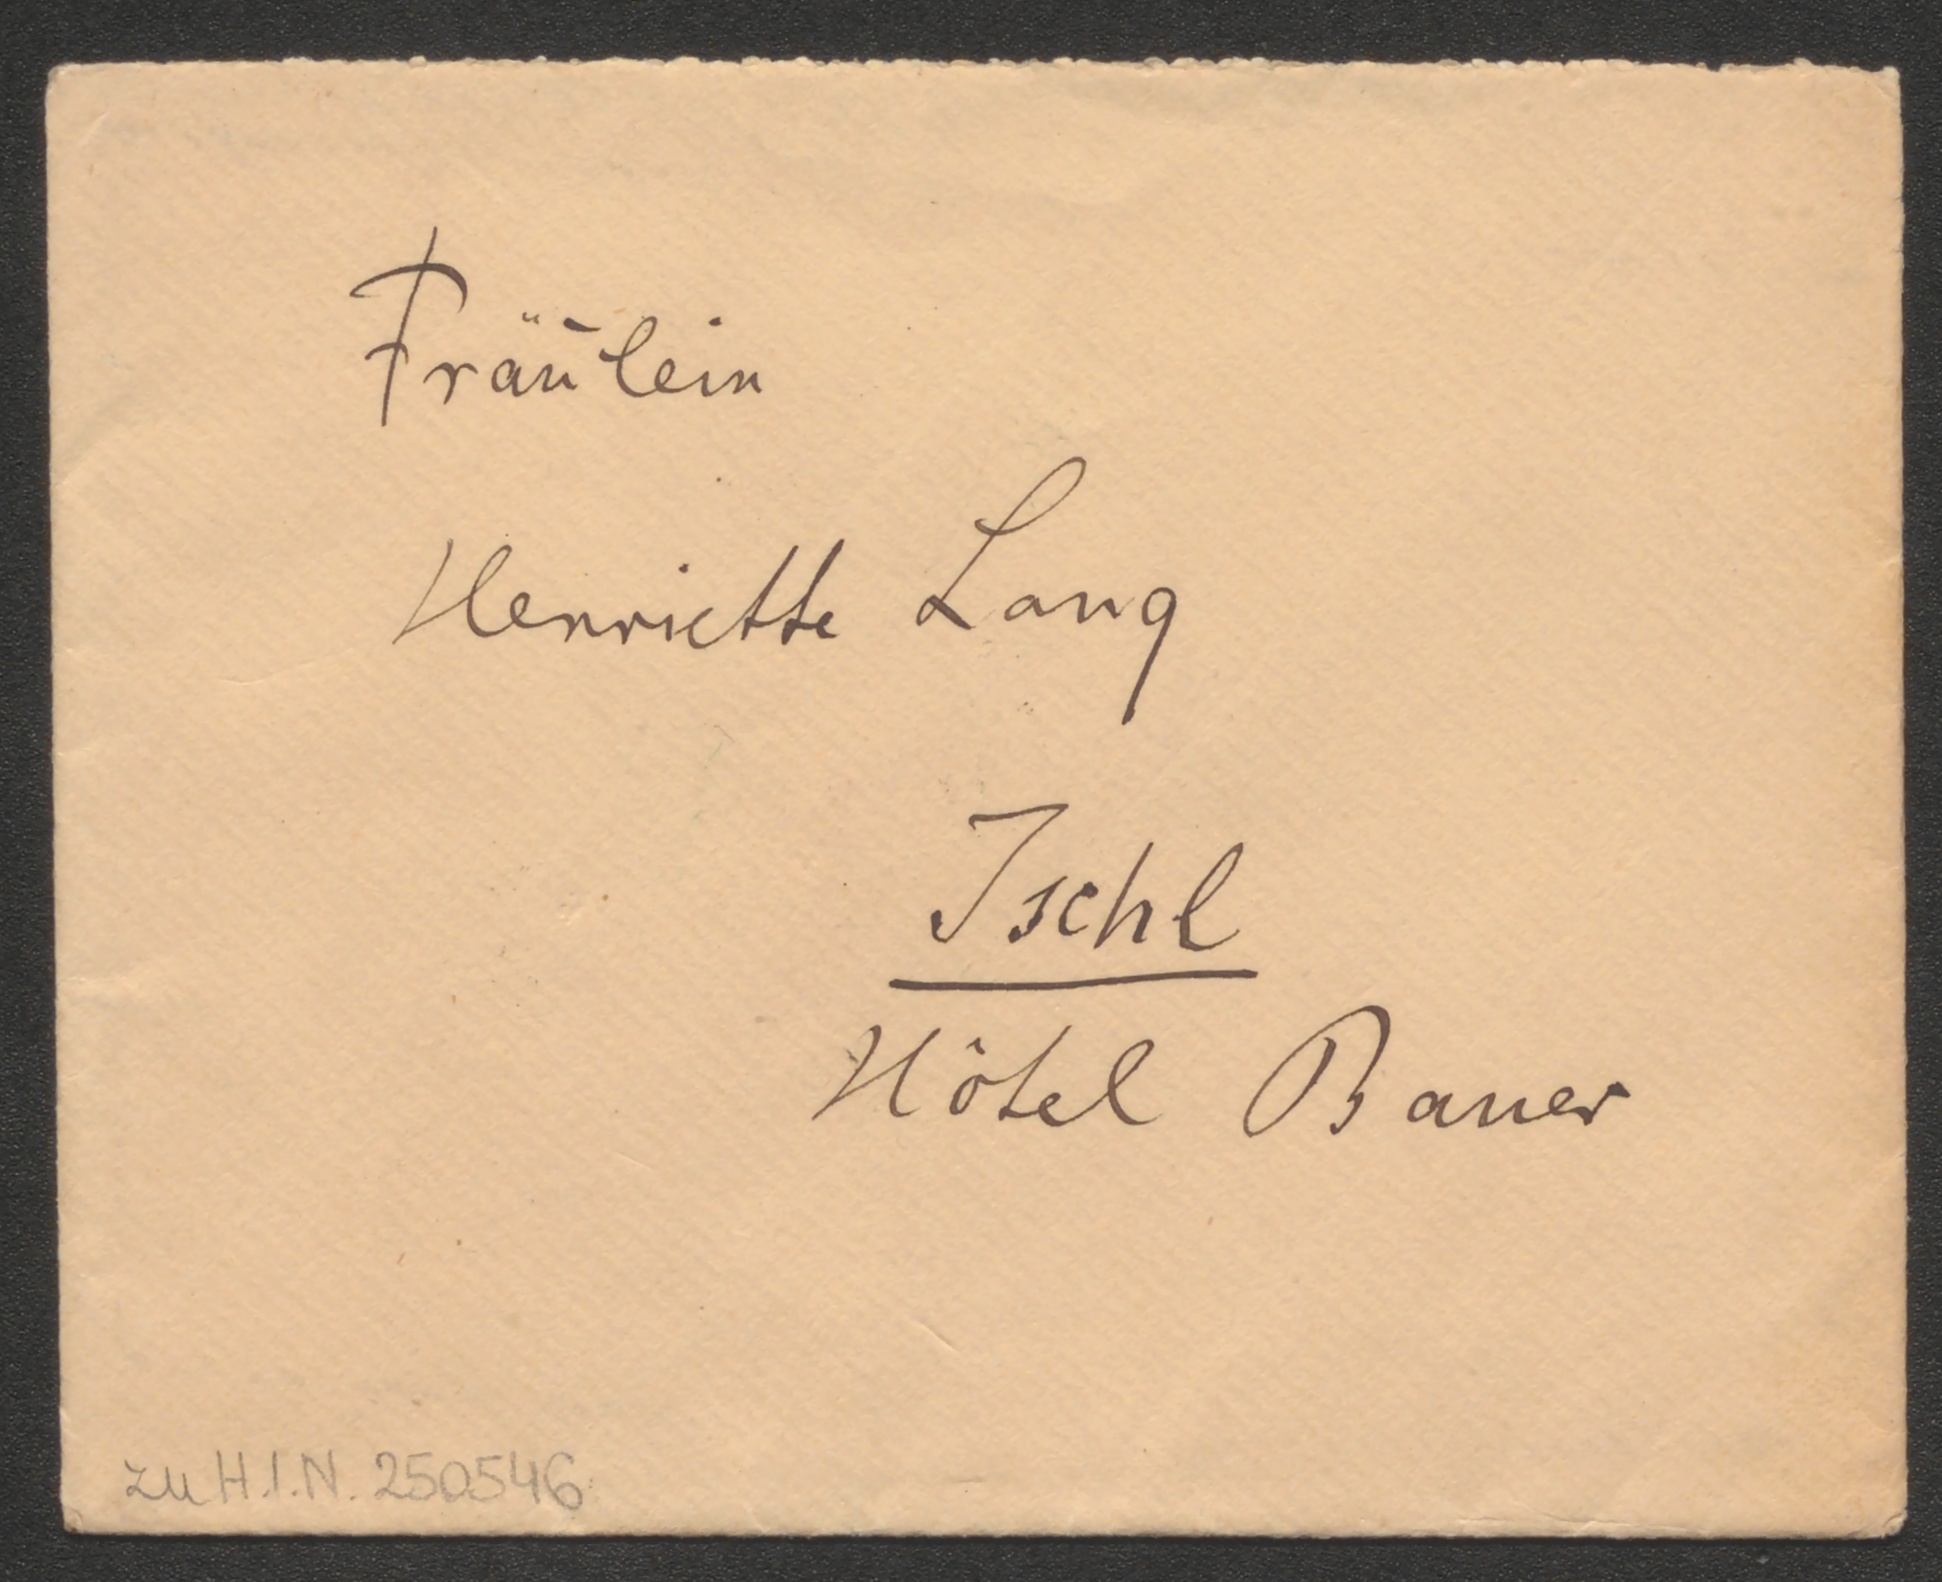 Fräulein
Henriette Lang
Ischl
Hôtel Bauer
zu H.I.N. 250546